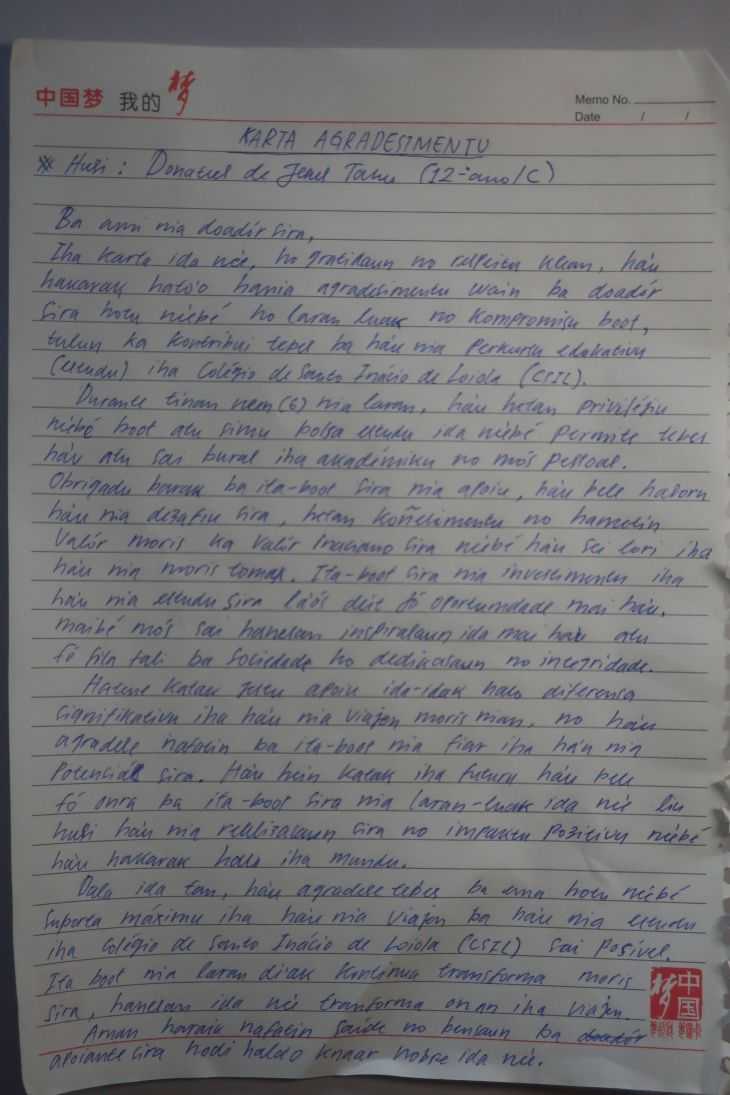 中国梦 我的梦
Memo No.
Date / /
KARTA AGRADESIMENTU
Husi : Donatus de Jesus Tame (12-ano/C)
Ba ami nia doadór sira,
Iha karta ida né'e, ho gratidaun no respeitu klean, ha'u
hakarak hato'o hania agradesimentu wain ba doadór
sira hotu né'ebé ho laran luak no kompromisu boot,
tulun ka kontribui tebes ba ha'u nia perkursu edukativu
(estudu) iha Colégio de Santo Inácio de Loiola (CSIL).
Durante tinan nem (6) nia laran, ha'u hetan priviléjiu
né'ebé boot atu simu bolsa estudu ida né'ebé permite tebes
ha'u atu sai buras iha akadémiku no mós pesoal.
Obrigadu barak ba ita-boot sira nia apoiu, ha'u bele hasoru
ha'u nia dezafiu sira, hetan koñesimentu no hametin
valór moris ka valór inaciano sira né'ebé ha'u sei lori iha
ha'u nia moris tomak. Ita-boot sira nia investimentu iha
ha'u nia estudu sira la'ós deit fó oportunidade mai ha'u,
maibé mós sai hanesan inspirasaun ida mai ha'u atu
fó fila fali ba sociedade ho dedikasaun no integridade.
Hatene katak jestu apoiu ida-idak halo diferensa
signifikativu iha ha'u nia viajen moris nian, no ha'u
agradese nafatin ba ita-boot nia fiar iha ha'u nia
potenciál sira. Ha'u hein katak iha futuru ha'u bele
fó onra ba ita-boot sira nia laran-luak ida né'e liu
husi ha'u nia realizasaun sira no impaktu pozitivu né'ebé
ha'u hakarak halo iha mundu.
Dala ida tan, ha'u agradese tebes ba ema hotu né'ebé
suporta máximu iha ha'u nia viajen ba ha'u nia estudu
iha Colégio de Santo Inácio de Loiola (CSIL) sai posível.
Ita boot nia laran diak kontinua transforma moris
sira, hanesan ida né'e tranforma onan iha viajen.
Aman haraik nafatin saúde no bensaun ba doadór
apoiante sira hodi haldo knaar nobre ida né'e.
中国梦